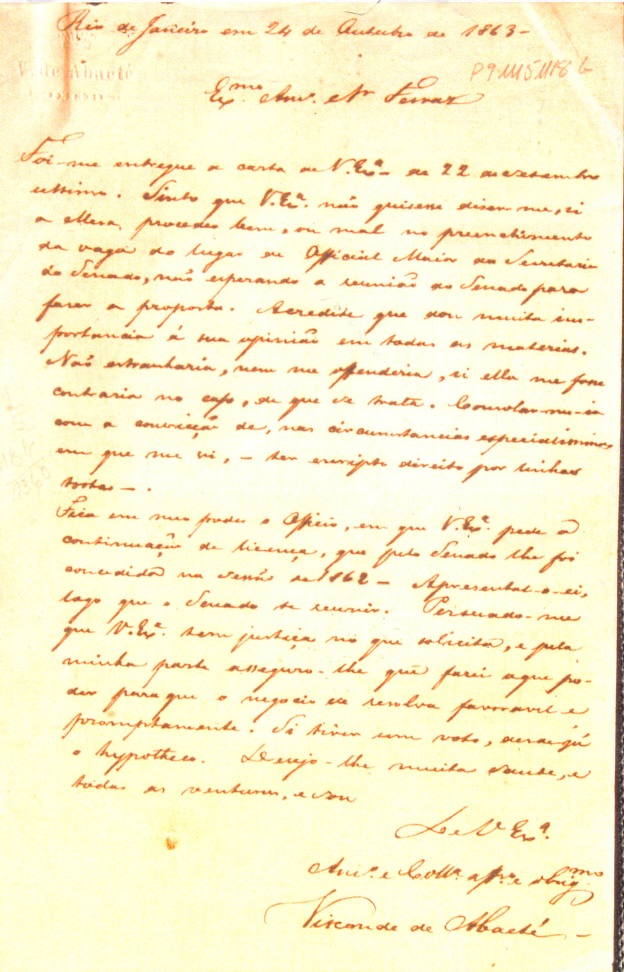 Rio de Janeiro em 24 de Outubro de 1863-
Vde de Abaeté
P9 M5 1118 b
Ex.mo Am.o e Sr Ferraz
Foi-me entregue a carta de V.Exa- de 22 de Setembro
ultimo. Sinto que V.Exa. não quisesse diser-me, si
a Mesa procedeo bem, ou mal no preenchimento
da vaga do lugar de Official Maior da Secretaria
do Senado, não esperando a reunião do Senado para
fazer a proposta. Acredite que dou muita im-
portancia á sua opinião em todas as materias.
Não estranharia, nem me offenderia, si ella me fosse
contraria no caso, de que se trata. Consolar-me-ia
com a convicção de, nas circumstancias especialissimas
em que me vi, - ter escripto direito por linhas
tortas-.
Fica em meu poder o Officio, em que V.Exa. pede a
continuação de licença, que pelo Senado lhe foi
concedida na sessão de 1862- Apresental-o-ei,
logo que o Senado se reunir. Persuado-me
que V.Exa. tem justiça no que solicita, e pela
minha parte asseguro-lhe que farei o que po-
der para que o negocio se resolva favoravel e
promptamente. Si tiver um voto, desde já
o hypotheco. Desejo-lhe muita saude, e
todas as venturas, e sou
De V Exa.
Am.o e Coll.a aff.o e obrig.mo
Visconde de Abaeté-